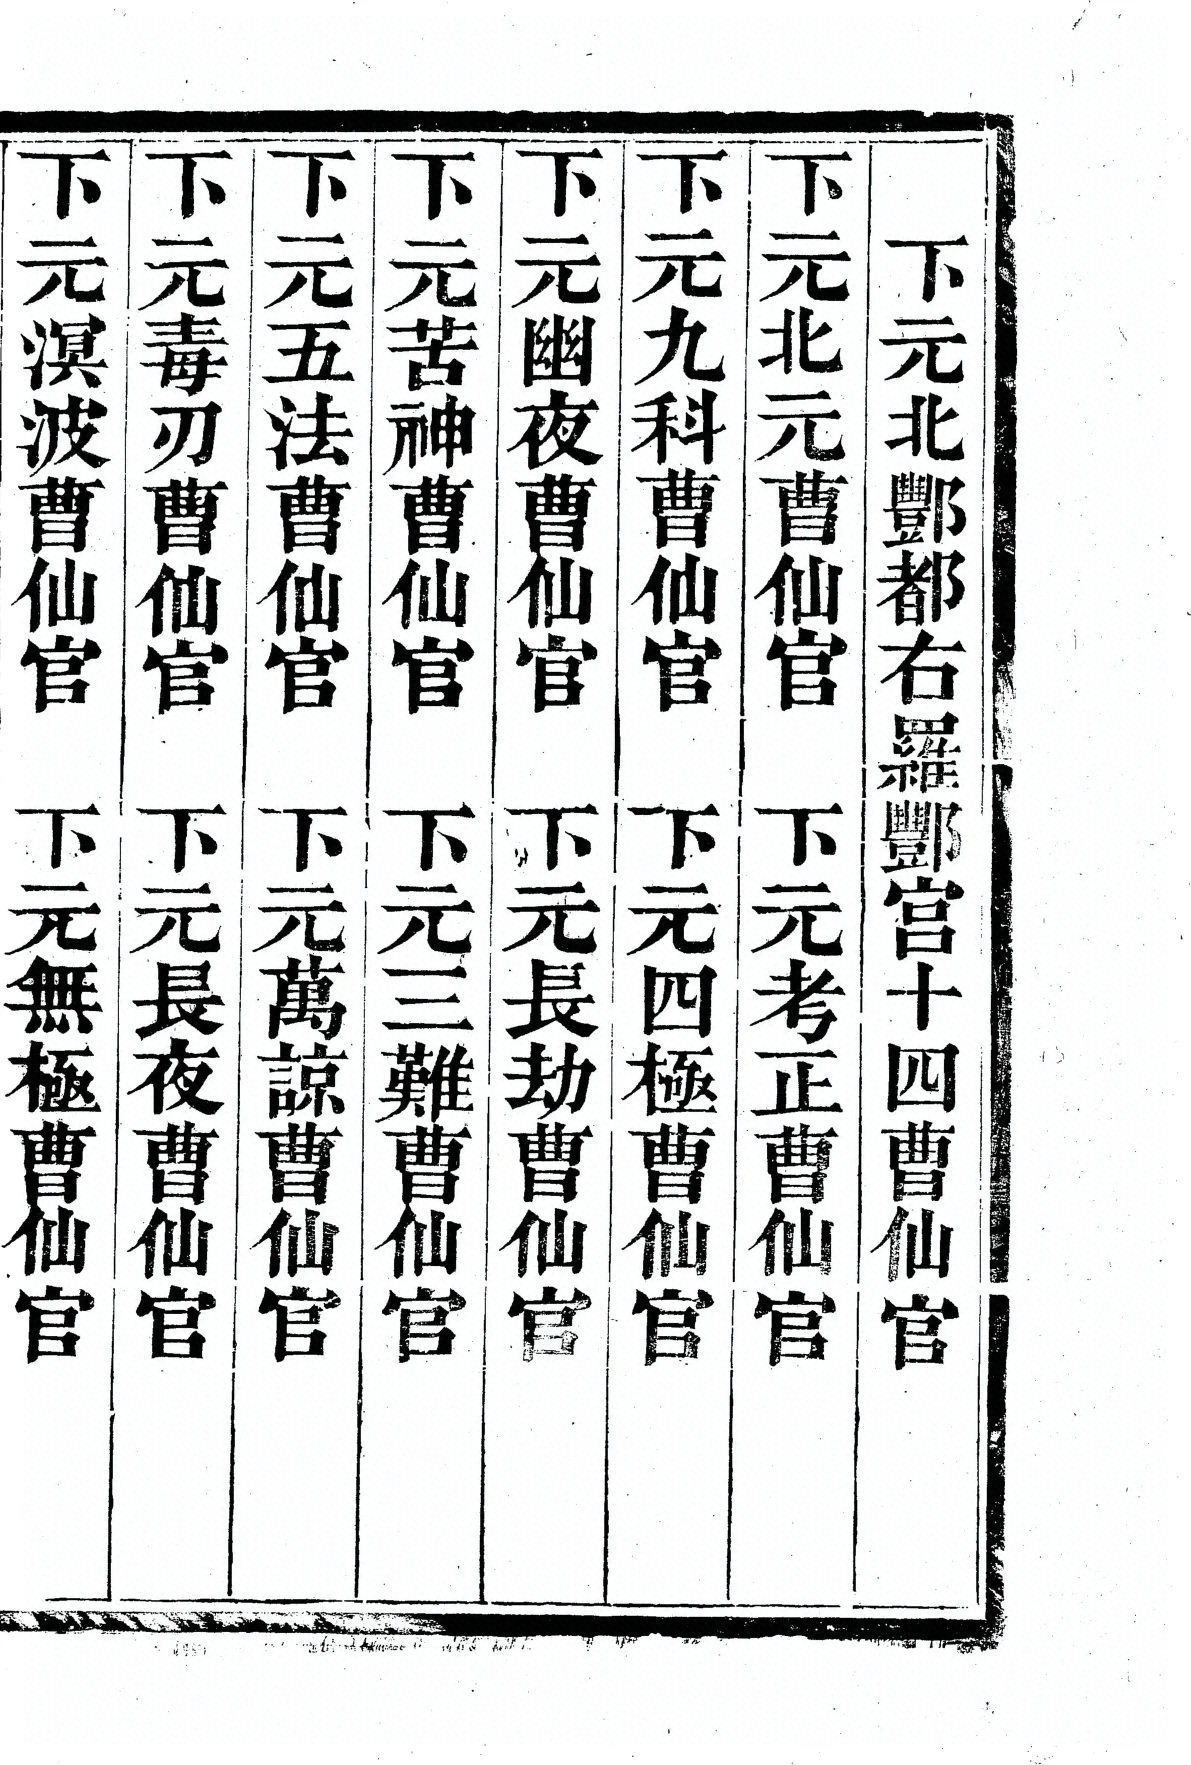 下元北酆都右羅酆宮十四曹仙官
下元北元曹仙官　下元考正曹仙官
下元九科曹仙官　下元四極曹仙官
下元幽夜曹仙官　下元長劫曹仙官
下元苦神曹仙官　下元三難曹仙官
下元五法曹仙官　下元萬諒曹仙官
下元毒刃曹仙官　下元長夜曹仙官
下元溟波曹仙官　下元無極曹仙官